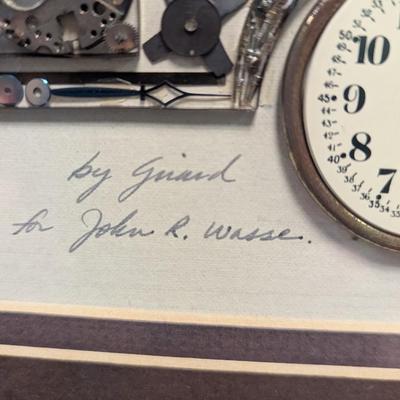 by Girard
for John R. Wasse.
50
10
45
9
40
8
39
38
37
36
35
34
33
7